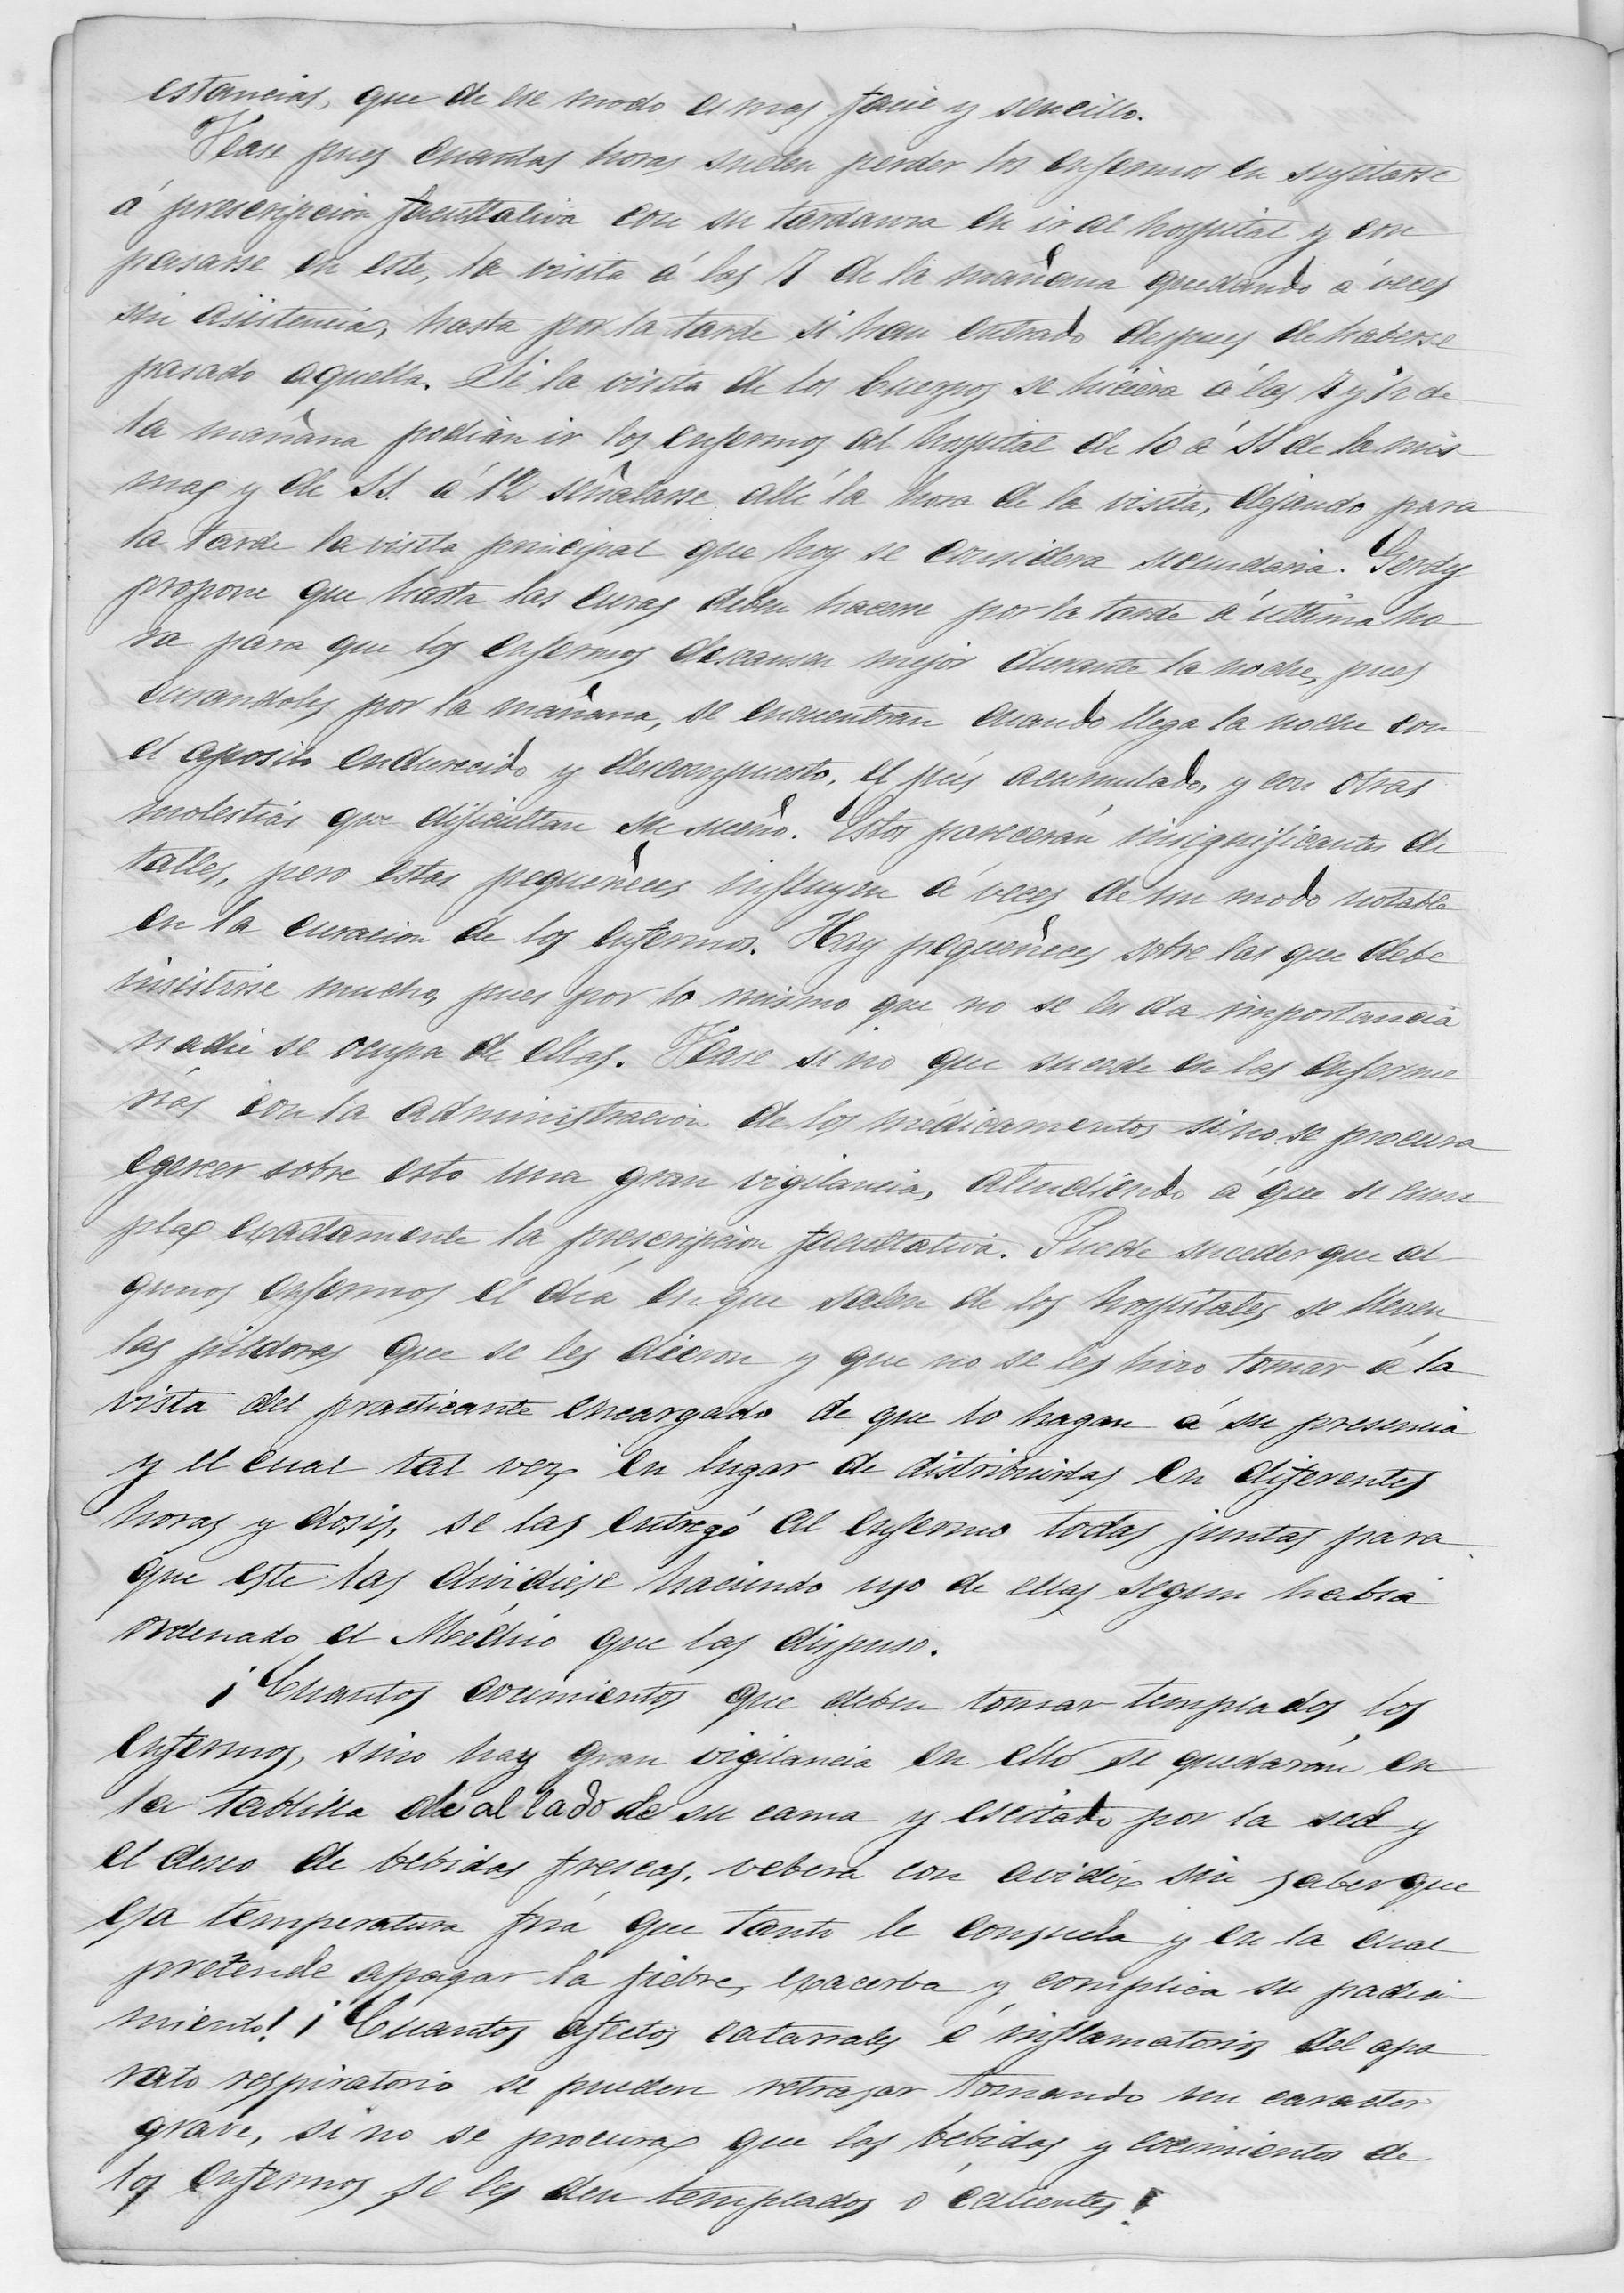 estancias, que de ese modo es mas facil y sencillo.
Vease pues cuantas horas suelen perder los enfermos en sujetarse
á prescripcion facultativa con su tardanza en ir al hospital y con
pasarse en este, la visita á las 7 de la mañana quedando á veces
sin asistencia, hasta por la tarde si han entrado despues de haberse
pasado aquella. Si la visita de los Cuerpos se hiciera á las 7 y ½ de
la mañana podian ir los enfermos al hospital de 10 á 11 de la mis
mas y de 11 á 12 señalarse allí la hora de la visita, dejando para
la tarde la visita principal que hoy se considera secundaria. Gerdy
propone que hasta las curas deben hacerse por la tarde á última ho
ra para que los enfermos descansen mejor durante la noche, pues
curandoles por la mañana, se encuentran cuando llega la noche con
el aposito endurecido y descompuesto, el pús acumulado, y con otras
molestias que dificultan su sueño. Estos parecerán insignificantes de
talles, pero estas pequeñeces influyen á veces de un modo notable
en la curacion de los enfermos. Hay pequeñeces sobre las que debe
insistirse mucho, pues por lo mismo que no se les da importancia
nadie se ocupa de ellas. Vease si no que sucede en las enferme
rías con la administracion de los medicamentos si no se procura
egercer sobre esto una gran vigilancia, atendiendo á que se cum
pla exactamente la prescripcion facultativa. Puede suceder que al
gunos enfermos el día en que salen de los hospitales se lleven
las pildoras que se les dieron y que no se les hizo tomar á la
vista del practicante encargado de que lo hagan á su presencia
y el cual tal vez en lugar de distribuirlas en diferentes
horas y dosis, se las entregó al enfermo todas juntas para
que este las dividiese haciendo uso de ellas segun habia
ordenado el Médico que las dispuso.
¡Cuantos cocimientos que deben tomar templados los
enfermos, sino hay gran vigilancia en ello se quedarán en
la tablilla de al lado de su cama y escitado por la sed y
el deseo de bebidas frescas, beberá con avidéz sin saber que
esa temperatura fria que tanto le consuela y en la cual
pretende apagar la fiebre, exacerba y complica su padeci
miento! ¡Cuantos afectos catarrales é inflamatorios del apa
rato respiratorio se pueden retrasar tomando un caracter
grave, si no se procura que las bebidas y cocimientos de
los enfermos se les den templados ó calientes!